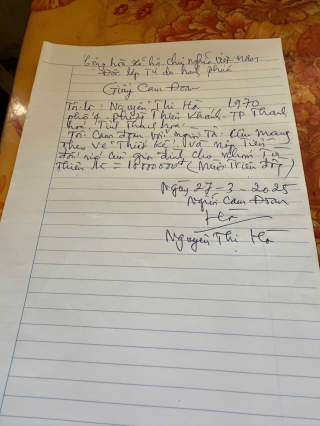 Cộng hòa xã hội chủ nghĩa việt nam
Độc lập Tự do hạnh phúc
Giấy Cam Đoan
Tôi là: Nguyễn Thị Hà 1970
phố 4 Thiên Khánh - TP Thanh
hóa, Tỉnh Thanh hóa
Tôi Cam đoan với
theo về Thiết kế và nộp Tiền
đối gia đình cho nhóm Từ
Thiện là = 10.000.000đ (Mười Triệu đồng)
Ngày 27-3-2025
Người Cam Đoan
Hà
Nguyễn Thị Hà